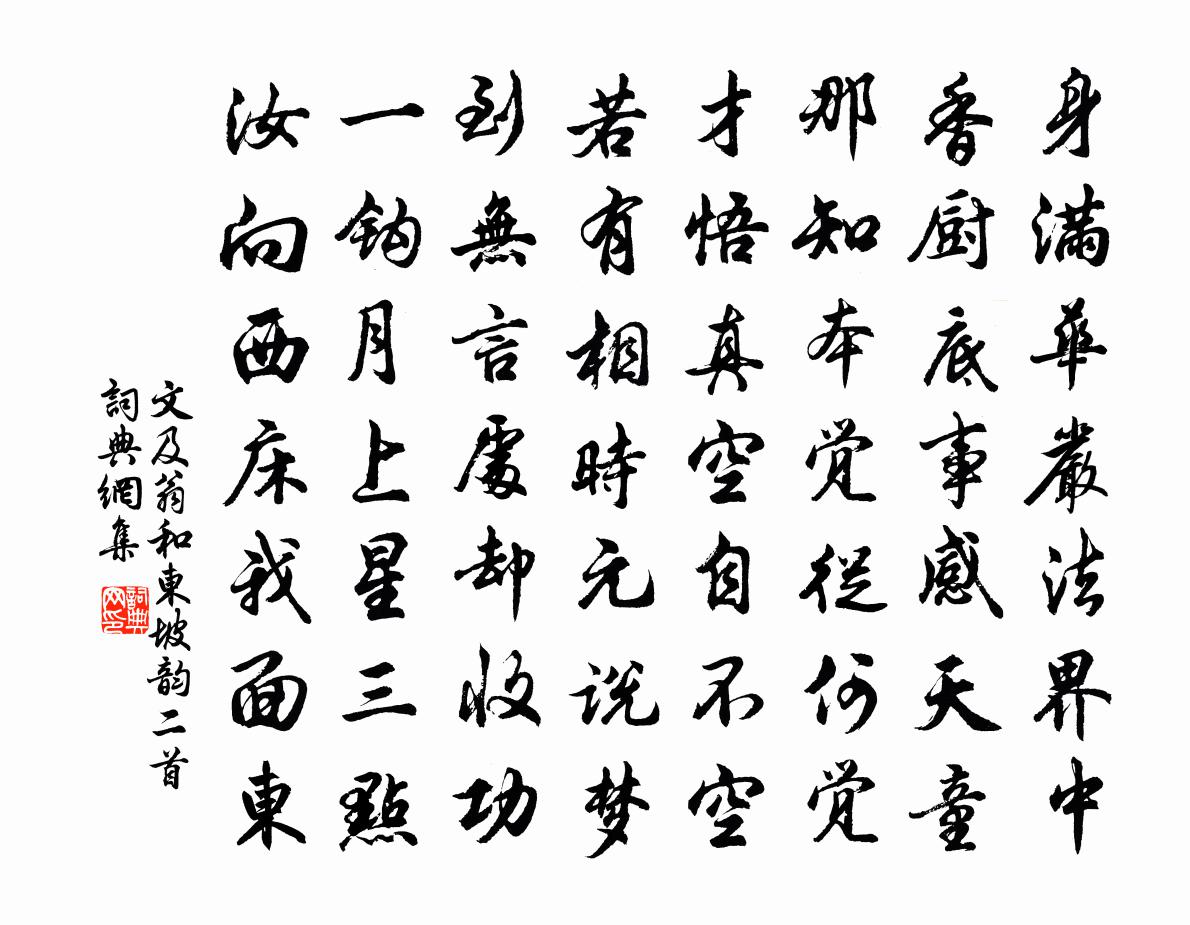 身滿華嚴法界中
香厨底事感天童
那知本覚從何覚
才悟真空自不空
若有相時元说梦
到無言處却收功
一鈎月上星三點
汝向西床我面東
文及翁和東坡韵二首
詞典網集
詞典网印